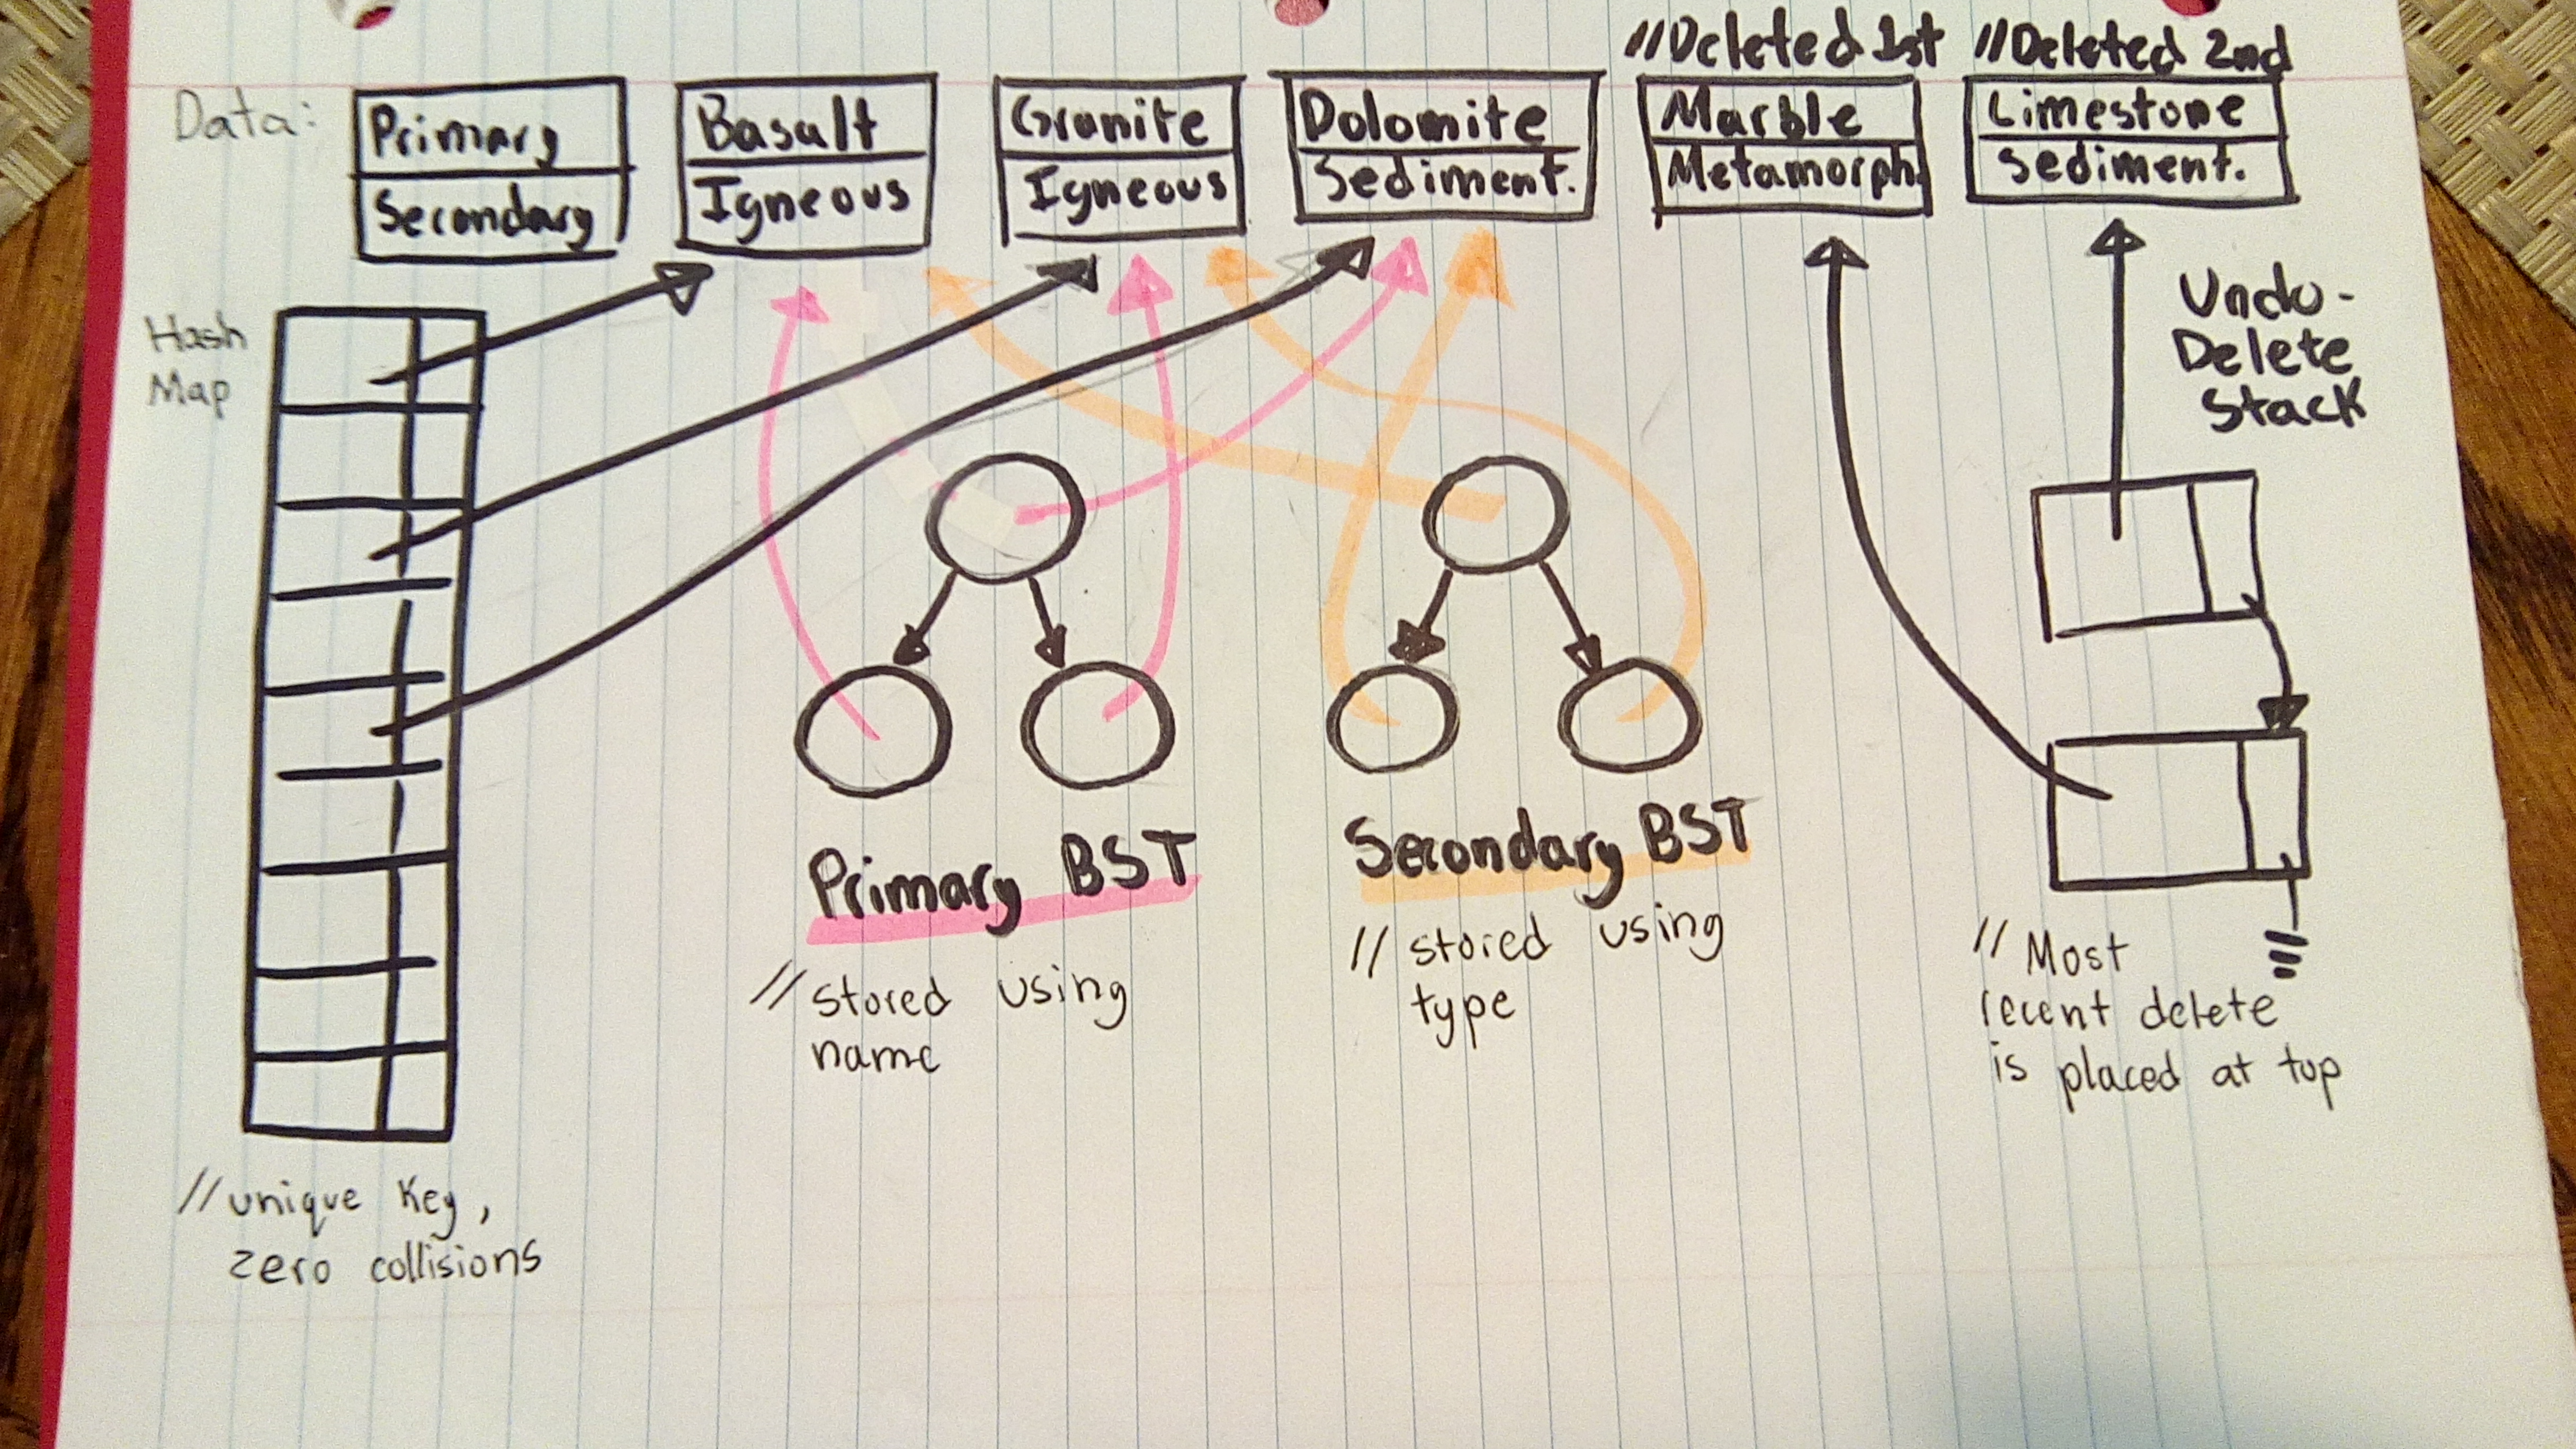 //Deleted 1st //Deleted 2nd
Data:
Primary
Secondary
Basalt
Igneous
Granite
Igneous
Dolomite
Sediment.
Marble
Metamorph.
Limestone
Sediment.
Hash
Map
Undo-
Delete
Stack
Primary BST
// stored using
name
Secondary BST
// stored using
type
// Most
recent delete
is placed at top
// unique key,
zero collisions